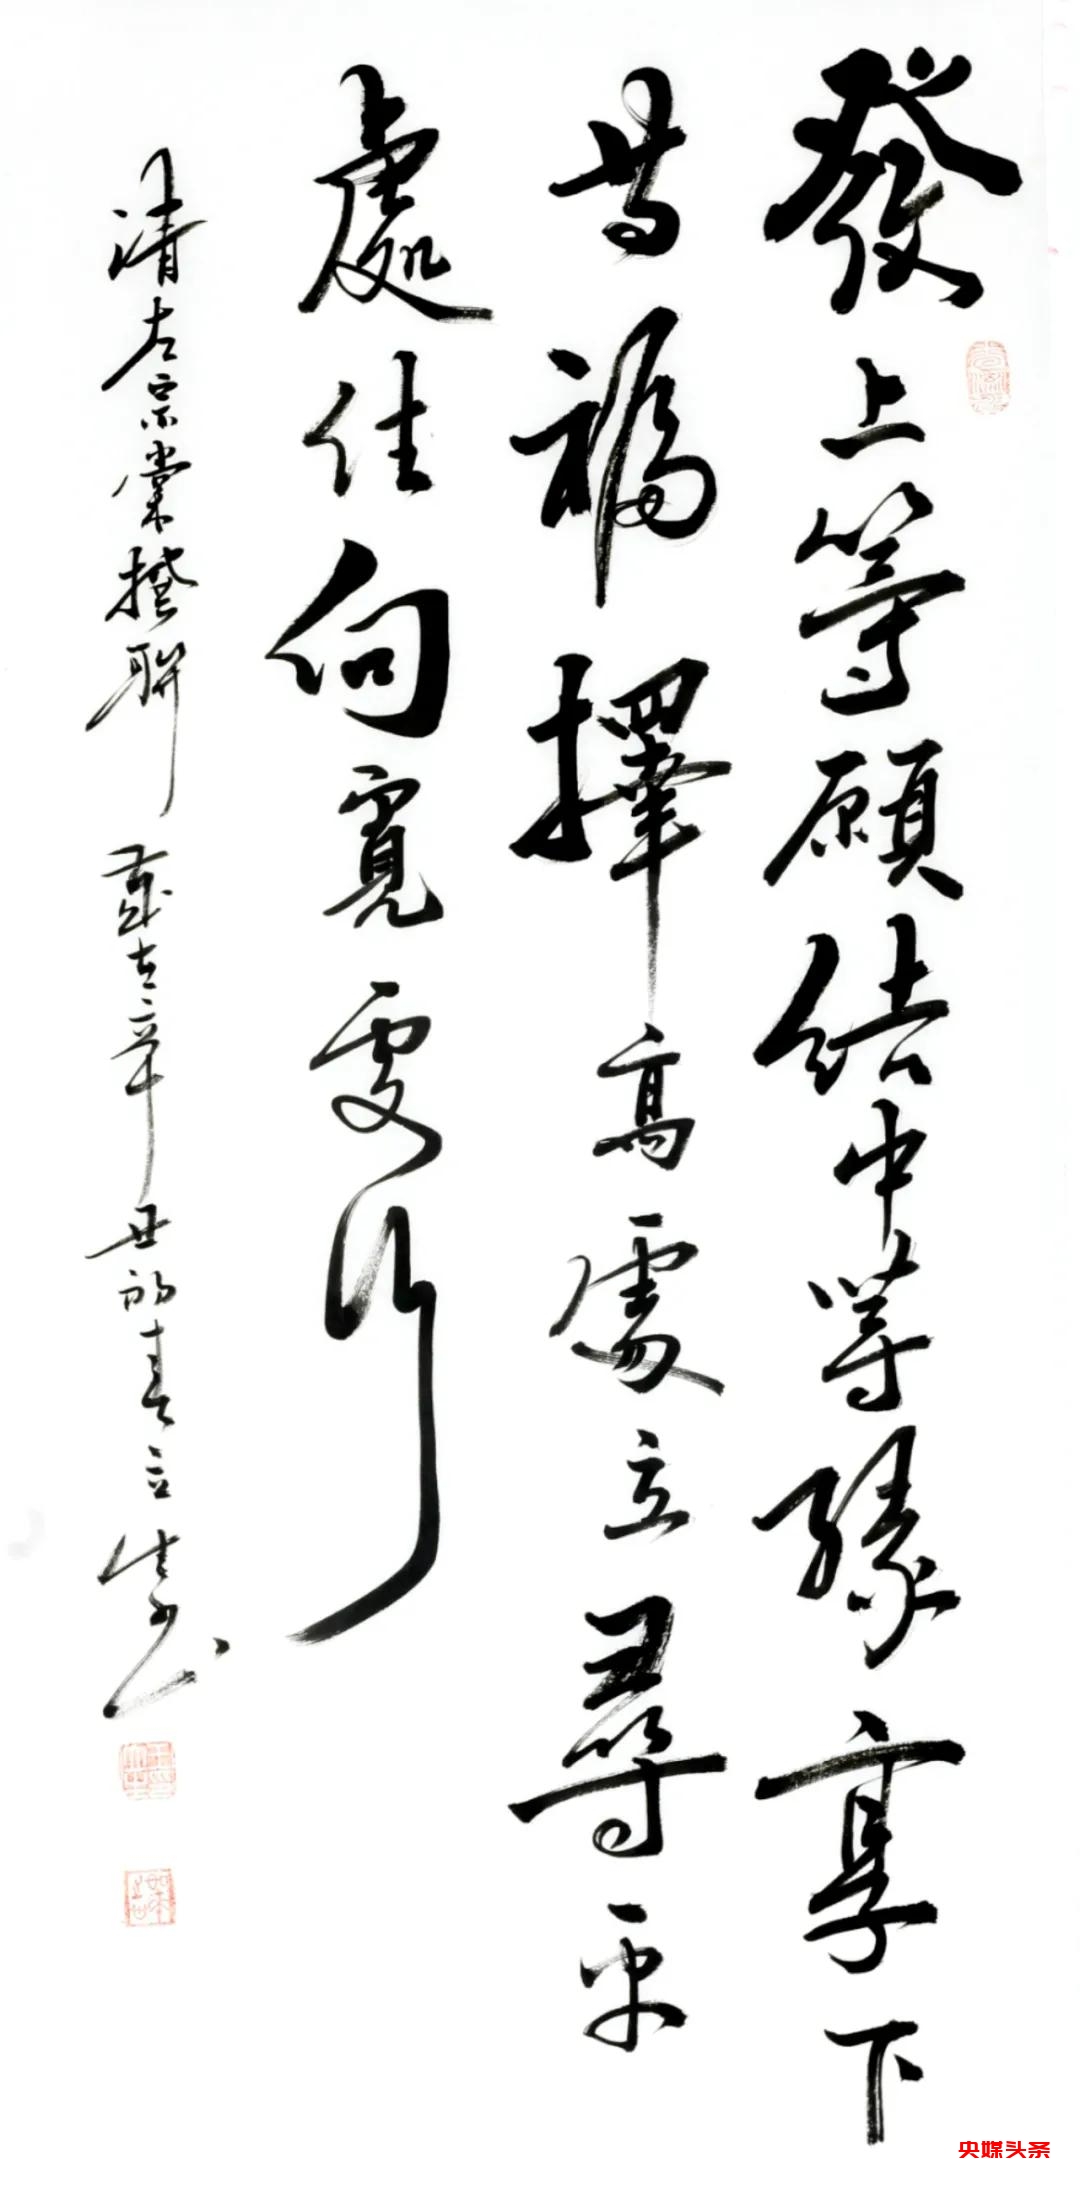 發上等願結中等緣享下
等福擇高處立尋平
處住向寬處行
清左宗棠撰聯 歲在辛丑初春立 書
央媒头条